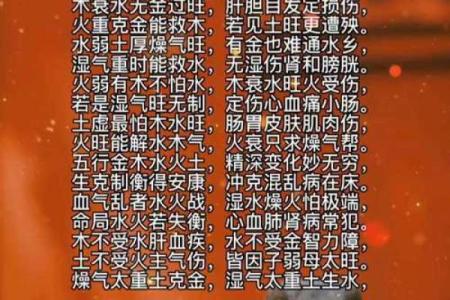 木衰水无金过旺，肝胆自发定损伤，
火重克金能救木，若见土旺更遭殃。
水弱土厚燥气旺，有金也难通水乡，
湿气重时能救水，无湿伤肾和膀胱。
火弱有木不怕水，木衰水旺火受伤，
若是湿气旺无制，定伤心血痛小肠。
土虚最怕木水旺，肠胃皮肤肌肉伤，
火旺能解水木气，火衰只求燥气帮。
五行金木水火土，精深变化妙无穷，
生克制衡得安康，冲克混乱病在床。
血气乱者水火战，湿水燥火怕极端，
命局水火若失衡，心血肺肾病常犯。
木不受水肝血疾，水不受金智力障，
土不受火主气伤，皆因子弱母太旺。
燥气太重土克金，湿气太重土生水，